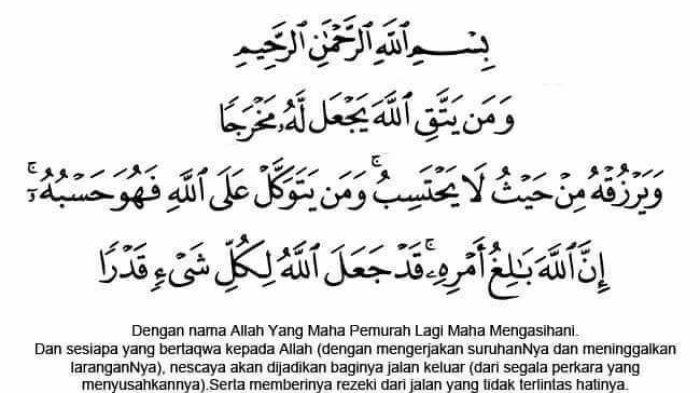 بِسْمِ اللَّهِ الرَّحْمَٰنِ الرَّحِيمِ
وَمَن يَتَّقِ اللَّهَ يَجْعَل لَّهُ مَخْرَجًا
وَيَرْزُقْهُ مِنْ حَيْثُ لَا يَحْتَسِبُ ۚ وَمَن يَتَوَكَّلْ عَلَى اللَّهِ فَهُوَ حَسْبُهُ ۚ
إِنَّ اللَّهَ بَالِغُ أَمْرِهِ ۚ قَدْ جَعَلَ اللَّهُ لِكُلِّ شَيْءٍ قَدْرًا
Dengan nama Allah Yang Maha Pemurah Lagi Maha Mengasihani.
Dan sesiapa yang bertaqwa kepada Allah (dengan mengerjakan suruhanNya dan meninggalkan
laranganNya), nescaya akan dijadikan baginya jalan keluar (dari segala perkara yang
menyusahkannya).Serta memberinya rezeki dari jalan yang tidak terlintas hatinya.